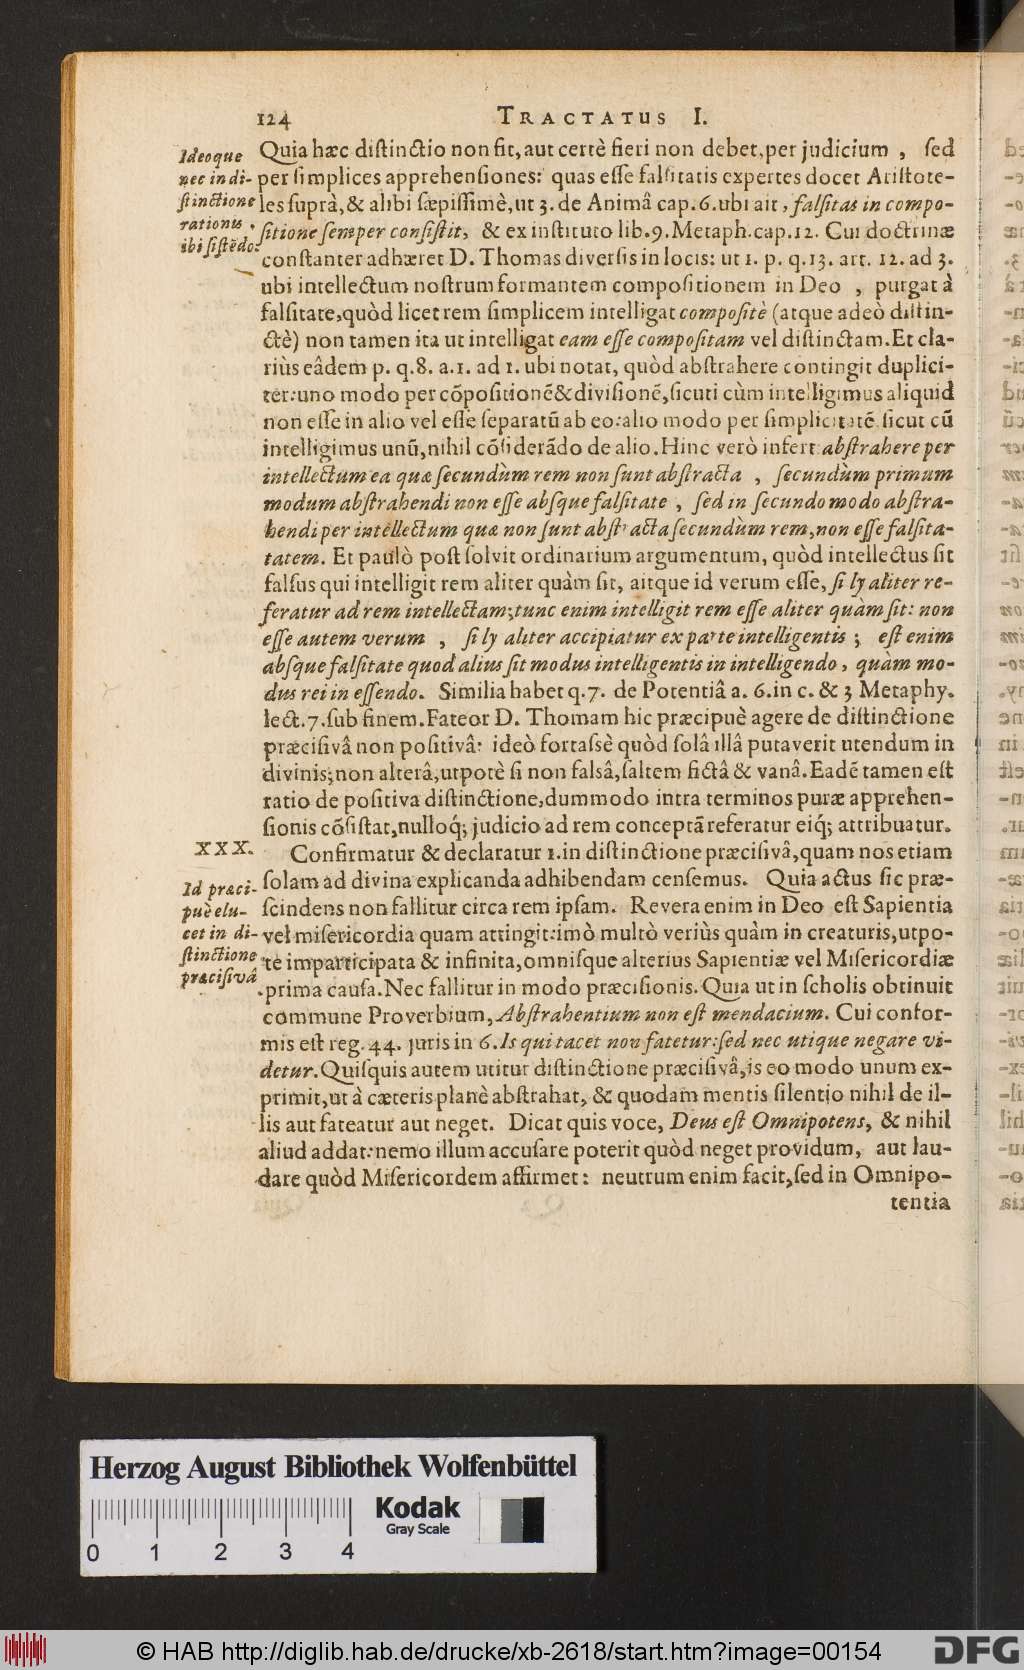 124 TRACTATUS I.
Ideoque
nec in di-
stinctione
rationis
ibi sistēdo:
Quia hæc distinctio non fit, aut certè fieri non debet, per judicium , sed
per simplices apprehensiones: quas esse falsitatis expertes docet Aristote-
les suprà, & alibi sæpissimè, ut 3. de Animâ cap. 6. ubi ait, falsitas in compo-
sitione semper consistit, & ex instituto lib. 9. Metaph. cap. 12. Cui doctrinæ
constanter adhæret D. Thomas diversis in locis: ut 1. p. q. 13. art. 12. ad 3.
ubi intellectum nostrum formantem compositionem in Deo , purgat à
falsitate, quòd licet rem simplicem intelligat compositè (atque adeò distin-
ctè) non tamen ita ut intelligat eam esse compositam vel distinctam. Et cla-
riùs eâdem p. q. 8. a. 1. ad 1. ubi notat, quòd abstrahere contingit duplici-
ter: uno modo per cōpositionē & divisionē, sicuti cùm intelligimus aliquid
non esse in alio vel esse separatū ab eo: alio modo per simplicitatē sicut cū
intelligimus unū, nihil cōsiderādo de alio. Hinc verò infert abstrahere per
intellectum ea quæ secundùm rem non sunt abstracta , secundùm primum
modum abstrahendi non esse absque falsitate , sed in secundo modo abstra-
hendi per intellectum quæ non sunt abstracta secundùm rem, non esse falsita-
tatem. Et paulò post solvit ordinarium argumentum, quòd intellectus sit
falsus qui intelligit rem aliter quàm sit, aitque id verum esse, si ly aliter re-
feratur ad rem intellectam; tunc enim intelligit rem esse aliter quàm sit: non
esse autem verum , si ly aliter accipiatur ex parte intelligentis ; est enim
absque falsitate quod alius sit modus intelligentis in intelligendo, quàm mo-
dus rei in essendo. Similia habet q. 7. de Potentiâ a. 6. in c. & 3 Metaphy.
lect. 7. sub finem. Fateor D. Thomam hic præcipuè agere de distinctione
præcisivâ non positivâ: ideò fortassè quòd solâ illâ putaverit utendum in
divinis; non alterâ, utpotè si non falsâ, saltem fictâ & vanâ. Eadē tamen est
ratio de positiva distinctione, dummodo intra terminos puræ apprehen-
sionis cōsistat, nulloq́; judicio ad rem conceptā referatur eiq́; attribuatur.
XXX.
Id præci-
puè elu-
cet in di-
stinctione
præcisivâ
Confirmatur & declaratur 1. in distinctione præcisivâ, quam nos etiam
solam ad divina explicanda adhibendam censemus. Quia actus sic præ-
scindens non fallitur circa rem ipsam. Revera enim in Deo est Sapientia
vel misericordia quam attingit: imò multò veriùs quàm in creaturis, utpo-
te imparticipata & infinita, omnisque alterius Sapientiæ vel Misericordiæ
prima causa. Nec fallitur in modo præcisionis. Quia ut in scholis obtinuit
commune Proverbium, Abstrahentium non est mendacium. Cui confor-
mis est reg. 44. juris in 6. Is qui tacet non fatetur: sed nec utique negare vi-
detur. Quisquis autem utitur distinctione præcisivâ, is eo modo unum ex-
primit, ut à cæteris planè abstrahat, & quodam mentis silentio nihil de il-
lis aut fateatur aut neget. Dicat quis voce, Deus est Omnipotens, & nihil
aliud addat: nemo illum accusare poterit quòd neget providum, aut lau-
dare quòd Misericordem affirmet: neutrum enim facit, sed in Omnipo-
tentia
Herzog August Bibliothek Wolfenbüttel
Kodak
Gray Scale
0 1 2 3 4
© HAB http://diglib.hab.de/drucke/xb-2618/start.htm?image=00154
DFG